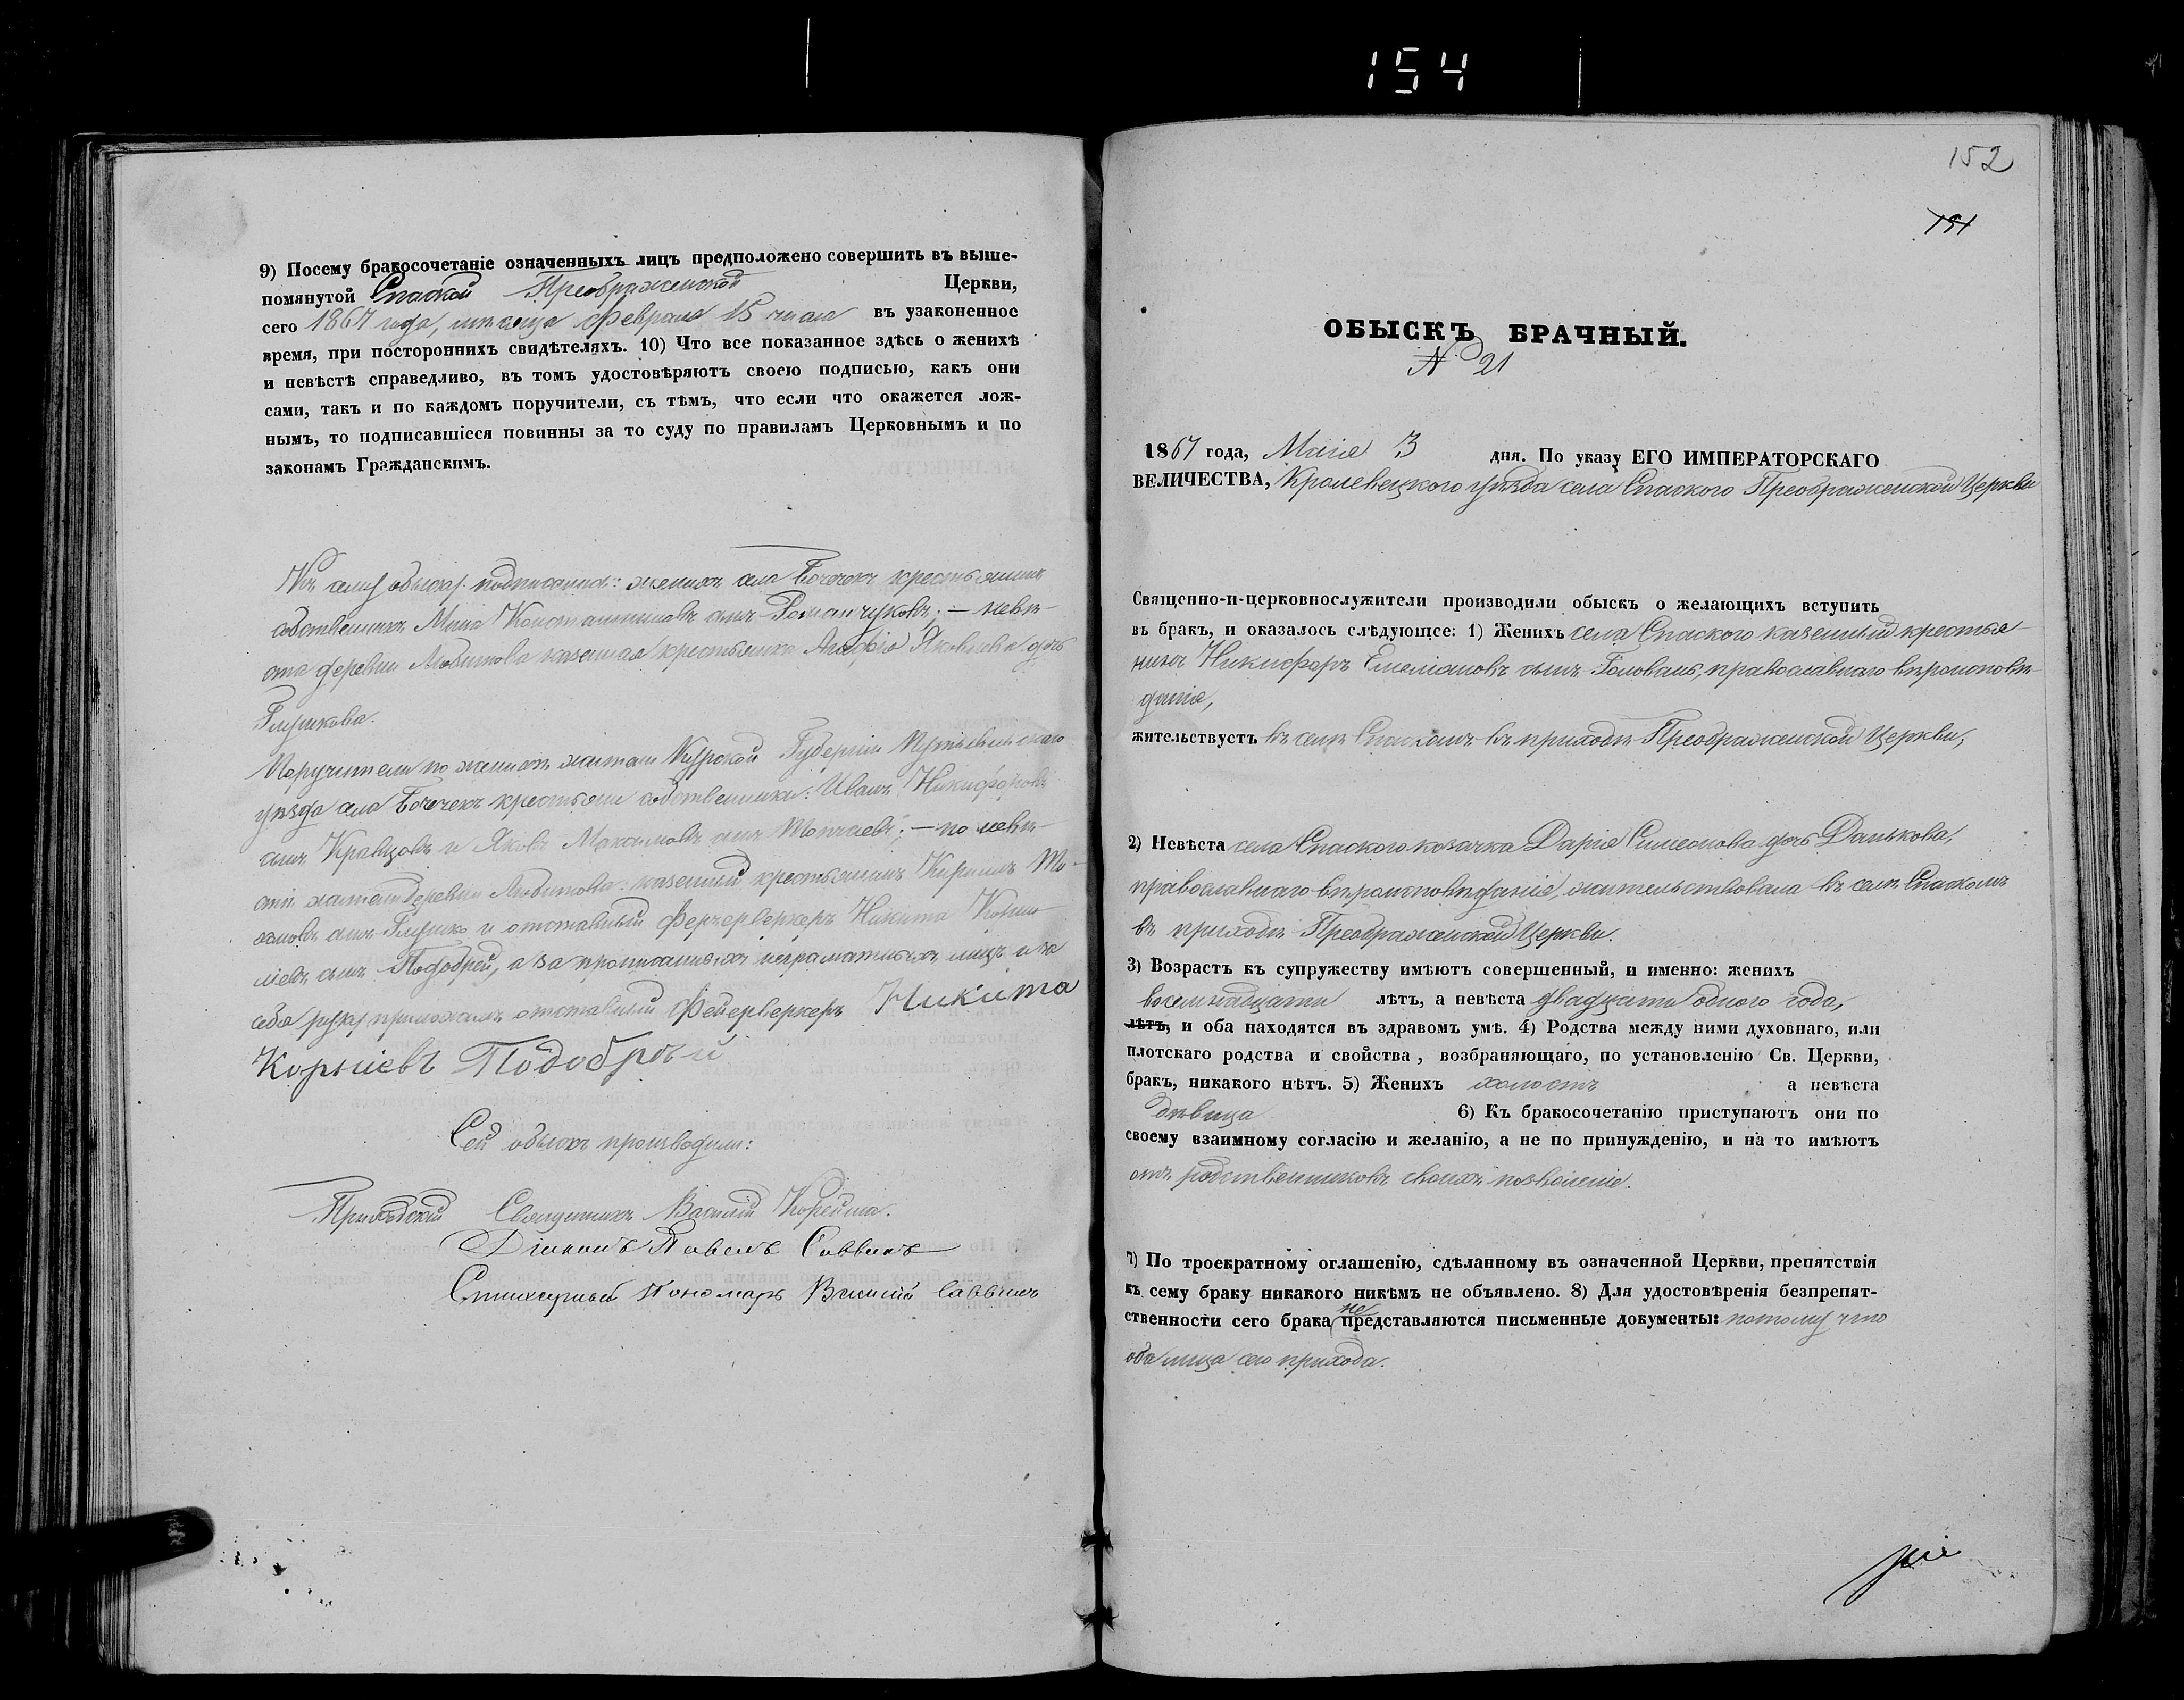 154
9) Посему бракосочетаніе означенныхъ лицъ предположено совершить въ выше-
помянутой Спаской Преображенской Церкви,
сего 1867 года, мѣсяца февраля 15 числа въ узаконенное
время, при постороннихъ свидѣтеляхъ. 10) Что все показанное здѣсь о женихѣ
и невѣстѣ справедливо, въ томъ удостовѣряютъ своею подписью, какъ они
сами, такъ и по каждомъ поручители, съ тѣмъ, что если что окажется лож-
нымъ, то подписавшіеся повинны за то суду по правиламъ Церковнымъ и по
законамъ Гражданскимъ.
Къ сему обыску подписались: женихъ села Бочечекъ крестьянинъ
собственникъ Мина Константиновъ сынъ Романчуковъ; — невѣ-
ста деревни Любитова казенная крестьянка Яковлева дочь
Глушкова.
Поручители по женихѣ жители Курской Губерніи Путивльскаго
уѣзда села Бочечекъ крестьяне собственники: Иванъ Никифоровъ
сынъ Кравцовъ и Яковъ сынъ; — по невѣ-
стѣ жители деревни Любитова: казенный крестьянинъ Кирилъ
сынъ Глушко и отставный Никита Корни-
ліевъ сынъ Подобрей, а за прописанныхъ неграматныхъ лицъ и за
себя руку приложилъ отставный Фейерверкеръ Никита
Корніевъ Подобрѣй
Сей обыскъ производили:
Приходскій Священникъ Василій Корейша.
Діаконъ Павелъ Саввичъ
Стихарный Пономарь Саввичъ
152
151
ОБЫСКЪ БРАЧНЫЙ.
№ 21
1867 года, Маія 3 дня. По указу ЕГО ИМПЕРАТОРСКАГО
ВЕЛИЧЕСТВА, Кролевецкого уѣзда села Спаского Преображенской Церкви
Священно-и-церковнослужители производили обыскъ о желающихъ вступить
въ бракъ, и оказалось слѣдующее: 1) Женихъ села Спаского казенный крестья
нинъ Никифоръ Емеліановъ сынъ Головань, православнаго вѣроисповѣ-
данія,
жительствуетъ въ селѣ Спаскомъ въ приходѣ Преображенской Церкви,
2) Невѣста села Спаского козачка Дарія Симеонова дочь Данькова,
православнаго вѣроисповѣданія, жительствовала въ селѣ Спаскомъ
въ приходѣ Преображенской Церкви.
3) Возрастъ къ супружеству имѣютъ совершенный, и именно: женихъ
восемнадцати лѣтъ, а невѣста двадцати одного года,
лѣтъ, и оба находятся въ здравомъ умѣ. 4) Родства между ними духовнаго, или
плотскаго родства и свойства, возбраняющаго, по установленію Св. Церкви,
бракъ, никакого нѣтъ. 5) Женихъ холостъ а невѣста
дѣвица 6) Къ бракосочетанію приступаютъ они по
своему взаимному согласію и желанію, а не по принужденію, и на то имѣютъ
отъ родственниковъ своихъ позволеніе.
7) По троекратному оглашенію, сдѣланному въ означенной Церкви, препятствія
къ сему браку никакого никѣмъ не объявлено. 8) Для удостовѣренія безпрепят-
ственности сего брака не представляются письменные документы: потому что
оба лица сего прихода.